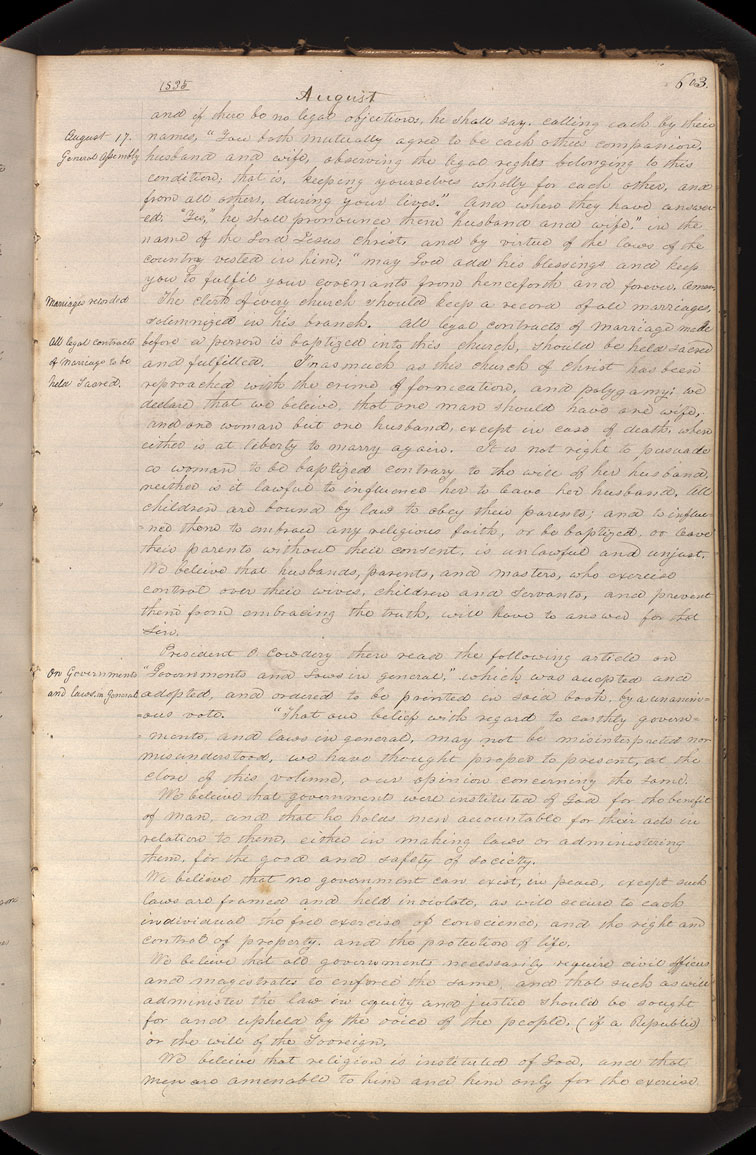 1835
603.
August
and if there be no legal objections, he shall say, calling each by their
August 17.
names, "You both mutually agree to be each others companion,
General Assembly
husband and wife, observing the legal rights belonging to this
condition; that is, keeping yourselves wholly for each other, and
from all others, during your lives." And when they have answer-
-ed, "Yes," he shall pronounce them "husband and wife," in the
name of the Lord Jesus Christ, and by virtue of the laws of the
country vested in him; "may God add his blessings and keep
you to fulfil your covenants from henceforth and forever. Amen.
Marriages recorded
The clerk of every church should keep a record of all marriages,
solemnized in his branch. All legal contracts of marriage made
All legal contracts
before a person is baptized into this church, should be held sacred
of marriage to be
and fulfilled. Inasmuch as this church of Christ has been
held Sacred.
reproached with the crime of fornication, and polygamy; we
declare that we beleive, that one man should have one wife,
and one woman but one husband, except in case of death, when
either is at liberty to marry again. It is not right to persuade
a woman to be baptized contrary to the will of her husband,
neither is it lawful to influence her to leave her husband. All
children are bound by law to obey their parents; and to influe-
-nce them to embrace any religious faith, or be baptized, or leave
their parents without their consent, is unlawful and unjust.
We beleive that husbands, parents, and masters, who exercise
control over their wives, children and servants, and prevent
them from embracing the truth, will have to answer for that
sin.
President O. Cowdery then read the following article on
On Governments
"Governments and Laws in general," which was accepted and
and laws in General
adopted, and ordered to be printed in said book, by a unanim-
-ous vote. "That our belief with regard to earthly govern-
-ments, and laws in general, may not be misinterpreted nor
misunderstood, we have thought proper to present, at the
close of this volume, our opinion concerning the same.
We beleive that government were instituted of God for the benefit
of man, and that he holds men accountable for their acts in
relation to them, either in making laws or administering
them, for the good and safety of society.
We believe that no government can exist, in peace, except such
laws are framed and held inviolate, as will secure to each
individual the free exercise of conscience, and the right and
control of property, and the protection of life.
We beleive that all governments necessarily require civil officers
and magistrates to enforce the same, and that such as will
administer the law in equity and justice should be sought
for and upheld by the voice of the people, (if a Republic)
or the will of the Sovereign.
We beleive that religion is instituted of God, and that
men are amenable to him and him only for the exercise